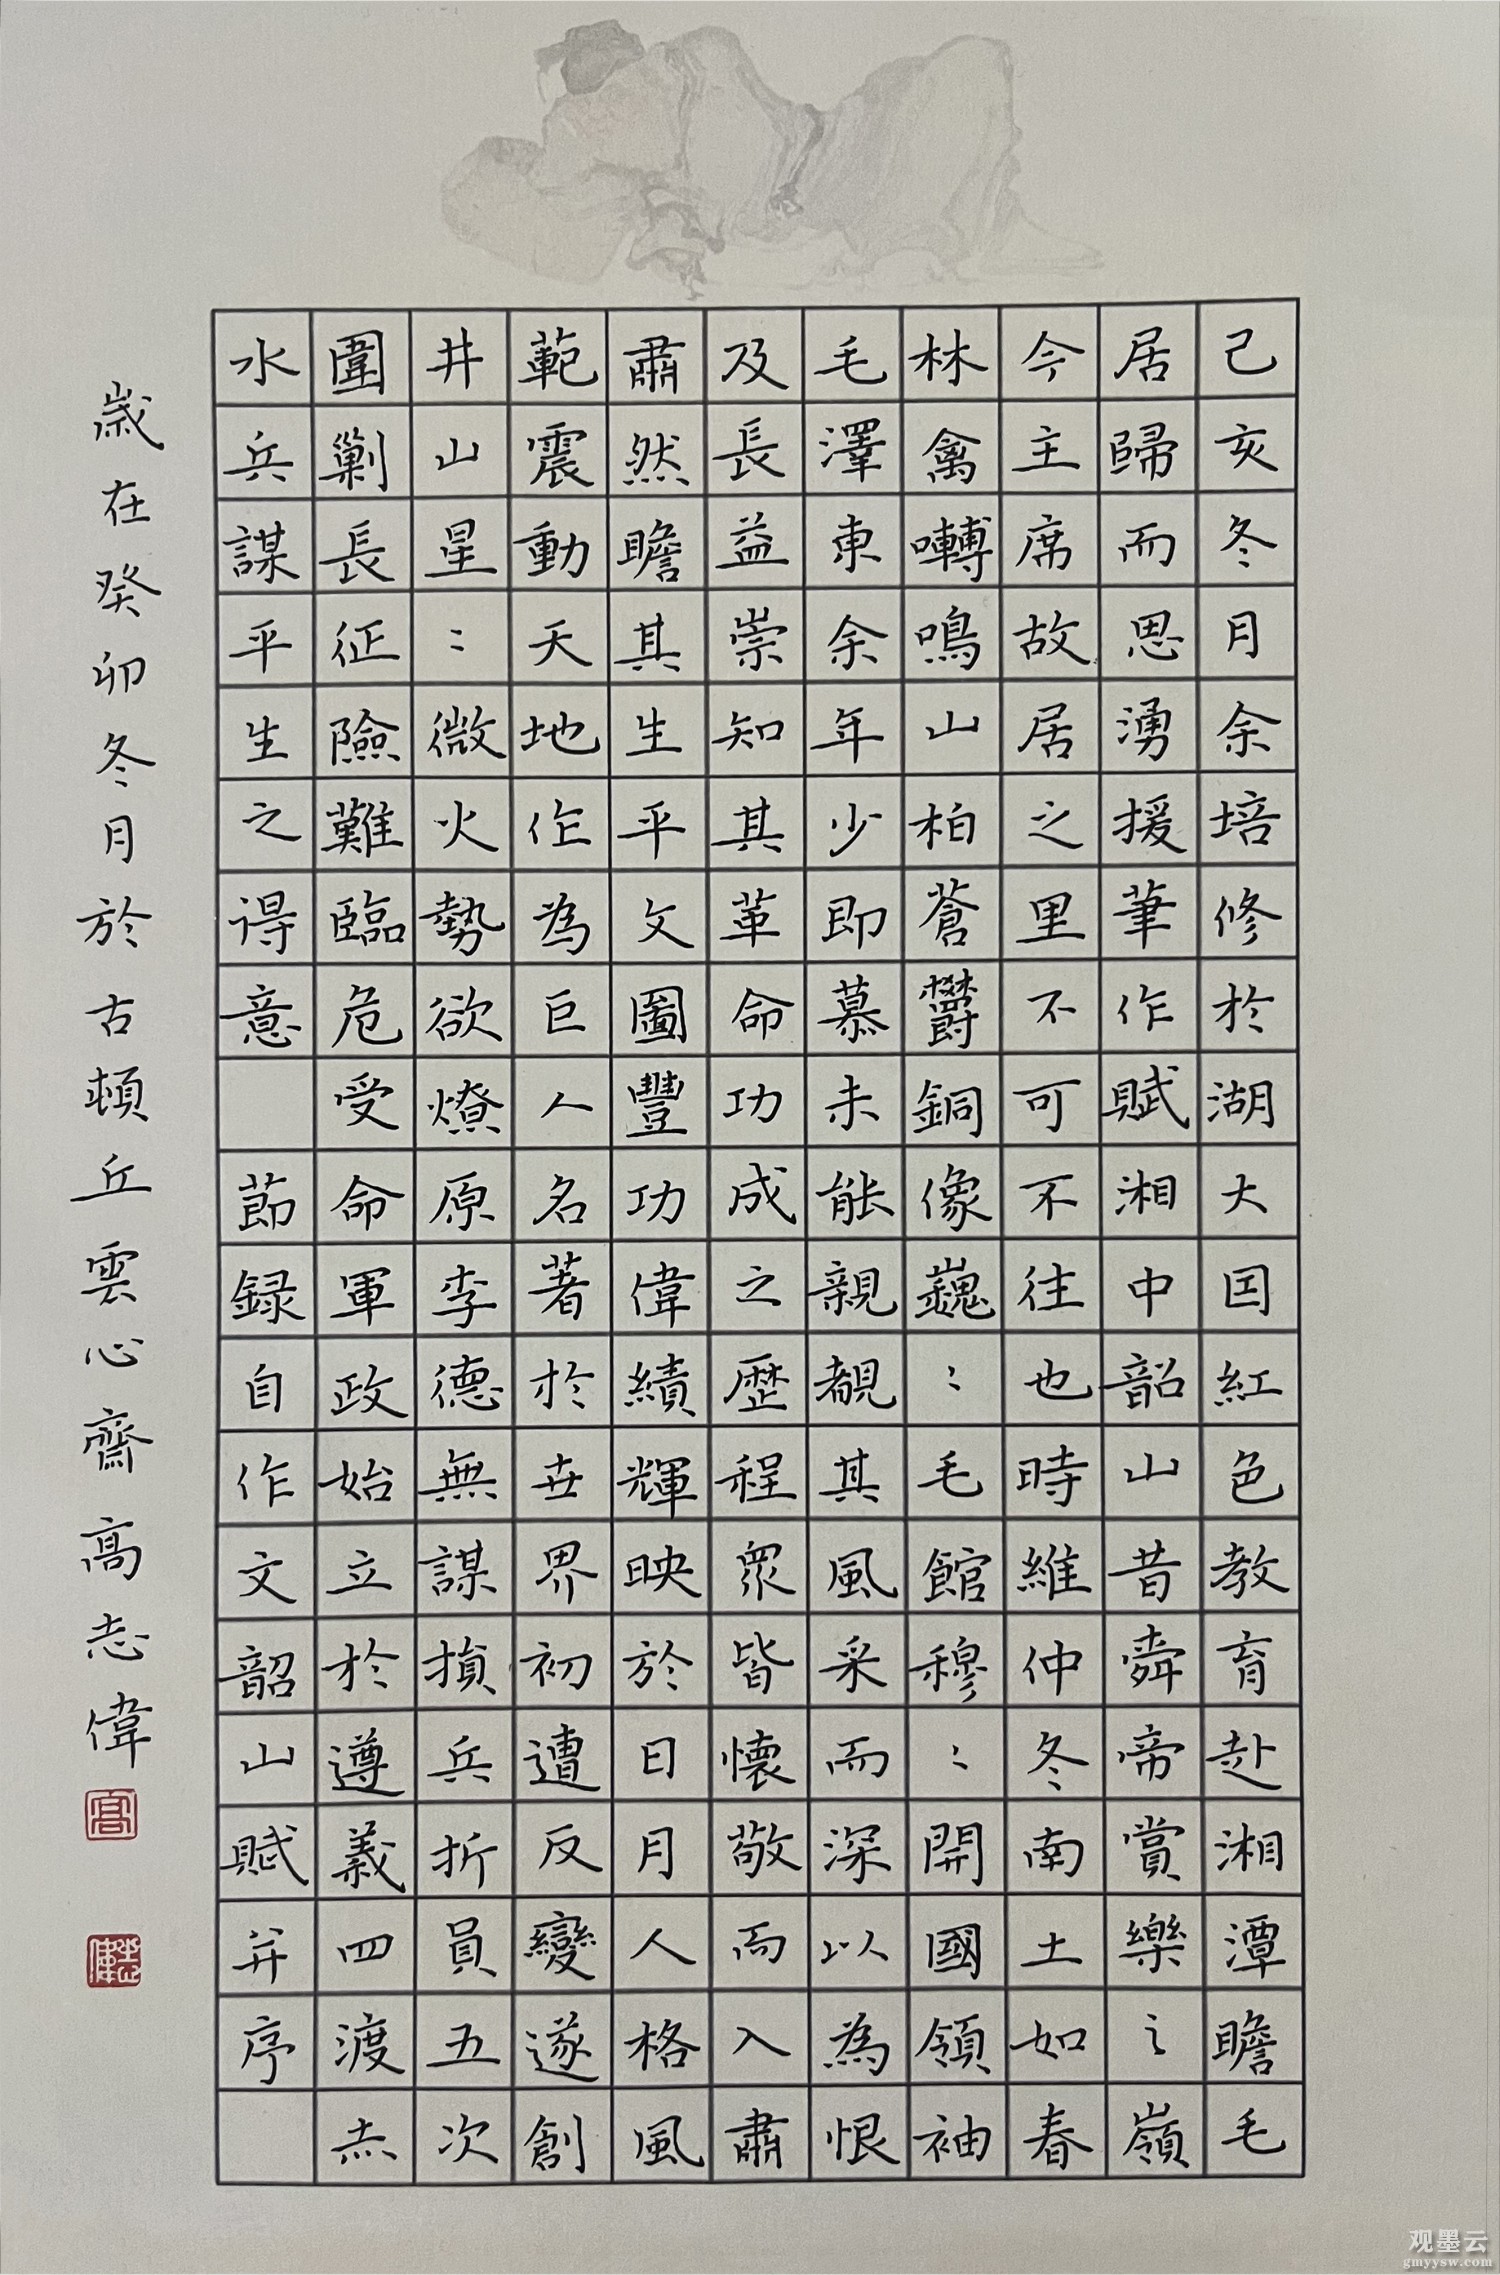 己亥冬月余培修於湖大囯紅色教育赴湘潭瞻毛
居歸而思湧援筆作賦湘中韶山昔舜帝賞樂之嶺
今主席故居之里不可不往也時維仲冬南土如春
林禽囀鳴山柏蒼鬱銅像巍〻毛館穆〻開國領袖
毛澤東余年少即慕未能親覩其風采而深以為恨
及長益崇知其革命功成之歷程眾皆懷敬而入肅
肅然瞻其生平文圖豐功偉績輝映於日月人格風
範震動天地作為巨人名著於世界初遭反變遂創
井山星〻微火勢欲燎原李德無謀損兵折員五次
圍剿長征險難臨危受命軍政始立於遵義四渡赤
水兵謀平生之得意 節録自作文韶山賦并序
歲在癸卯冬月於古頓丘雲心齋高志偉
高
志偉
观墨云
gmyysw.com